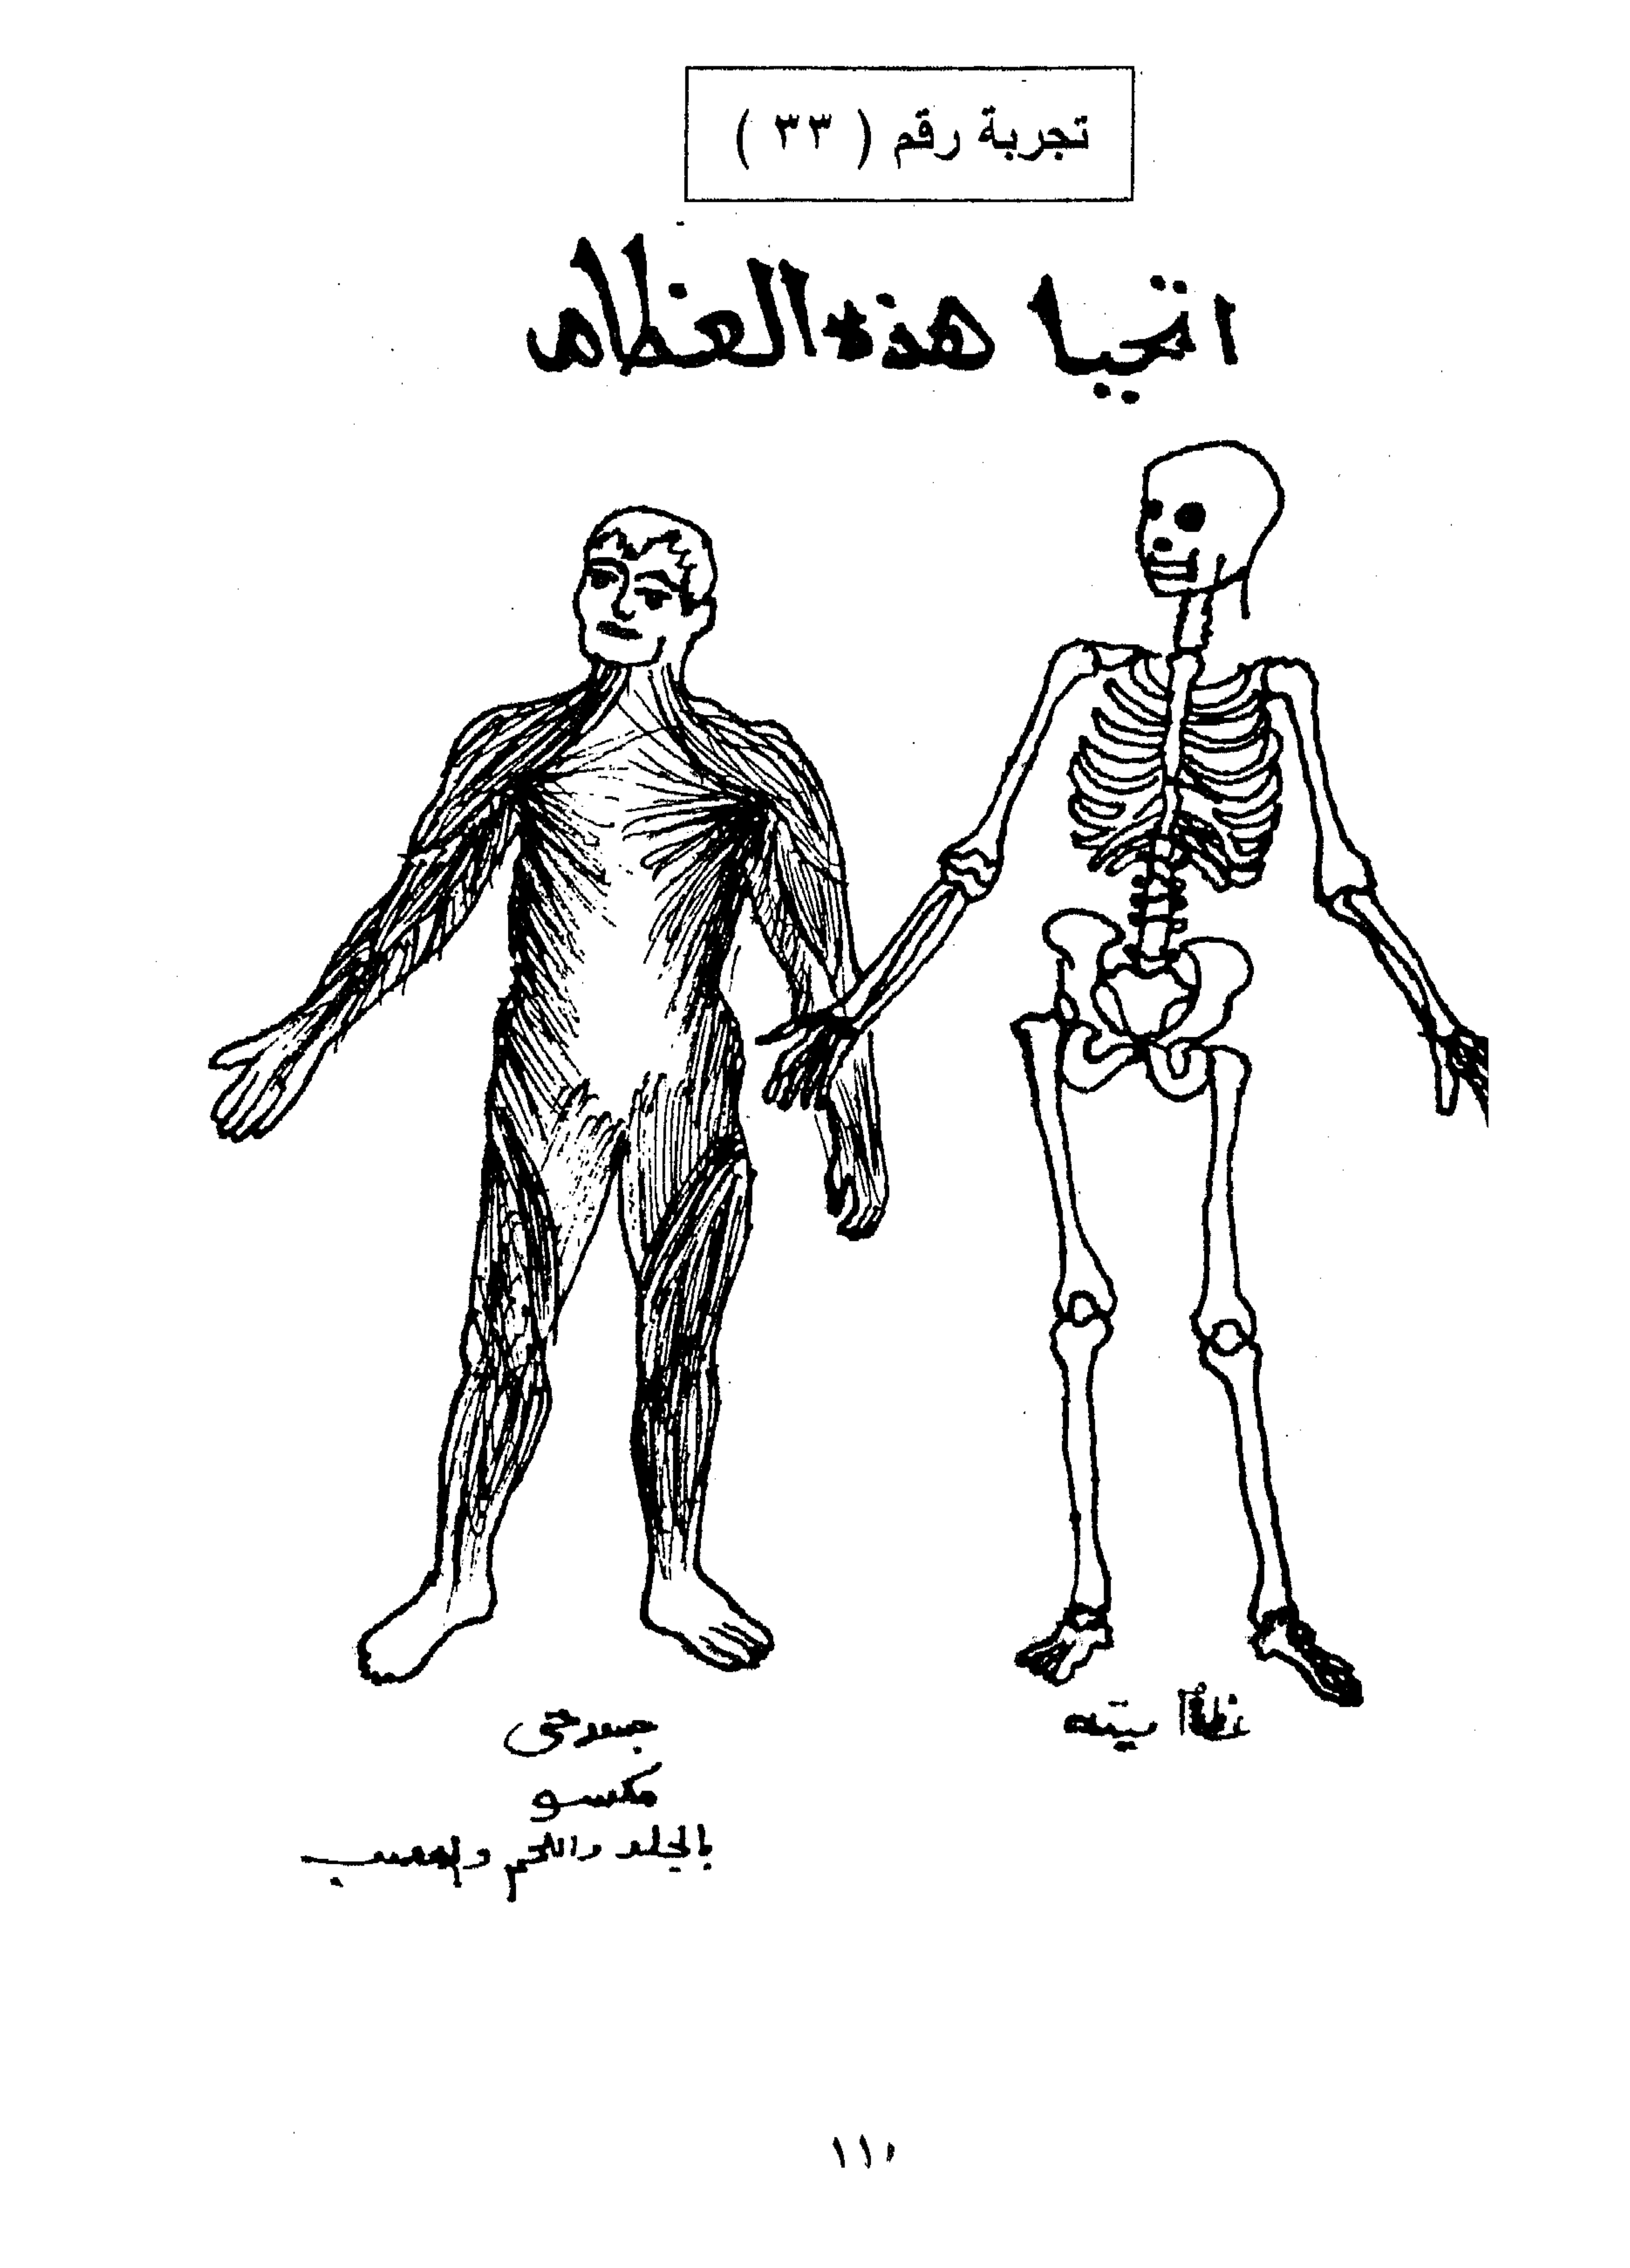 تجربة رقم ( ٣٣ )
اتحيا هذه العظام
جسد حى
مكسو
بالجلد واللحم والعصب
١١١